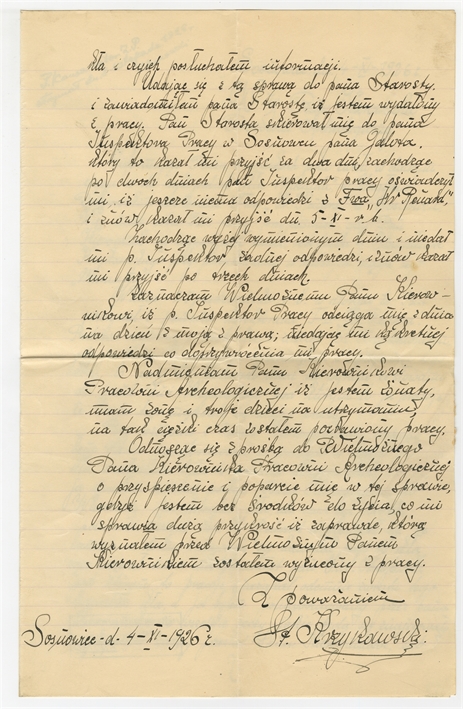 dła i czyjch posłuchałem informacji.
Udając się z tą sprawą do pana Starosty
i zawiadomiłem pana Starostę iż jestem wydalony
z pracy. Pan Starosta skierował mię do pana
Inspektora Pracy w Sosnowcu pana Galota,
który to kazał mi przyjść za dwa dni, zachodzę
po dwoch dniach pan Inspektor pracy oświadczył
mi, iż jeszcze niema odpowiedzi z Fwa, „Hr Renard,"
i znów, kazał mi przyjść dn. 5-XI-r.b.
Zachodzę wyżej wymienionym dniu i niedał
mi p. Inspektor żadnej odpowiedzi, iznów kazał
mi przyjść po trzech dniach.
Zaznaczam Wielmożnemu Panu Kierow-
nikowi, iż p. Inspektor Pracy odciąga mię z dnia
na dzień z moją sprawą; niedając mi
odpowiedzi co do przywrócenia mi pracy.
Nadmieniam Panu Kierownikowi
Pracowni Archeologicznej iż jestem żonaty,
mam żonę i troje dzieci na utrzymaniu,
na tak ciężki czas zostałem pozbawiony pracy.
Odnosząc się z prośbą do Wielmożnego
Pana Kierownika Pracowni Archeologicznej
o przyspieszenie i poparcie mię w tej sprawie,
gdyż jestem bez środków do życia, co mi
sprawia dużą przykrość iż zaprawdę, którą
wyznałem przed Wielmożnym Panem
Kierownikiem zostałem wyrzucony z pracy.
Z poważaniem
Sosnowiec-d-4-XI-1926 r. St. Krzykowski: